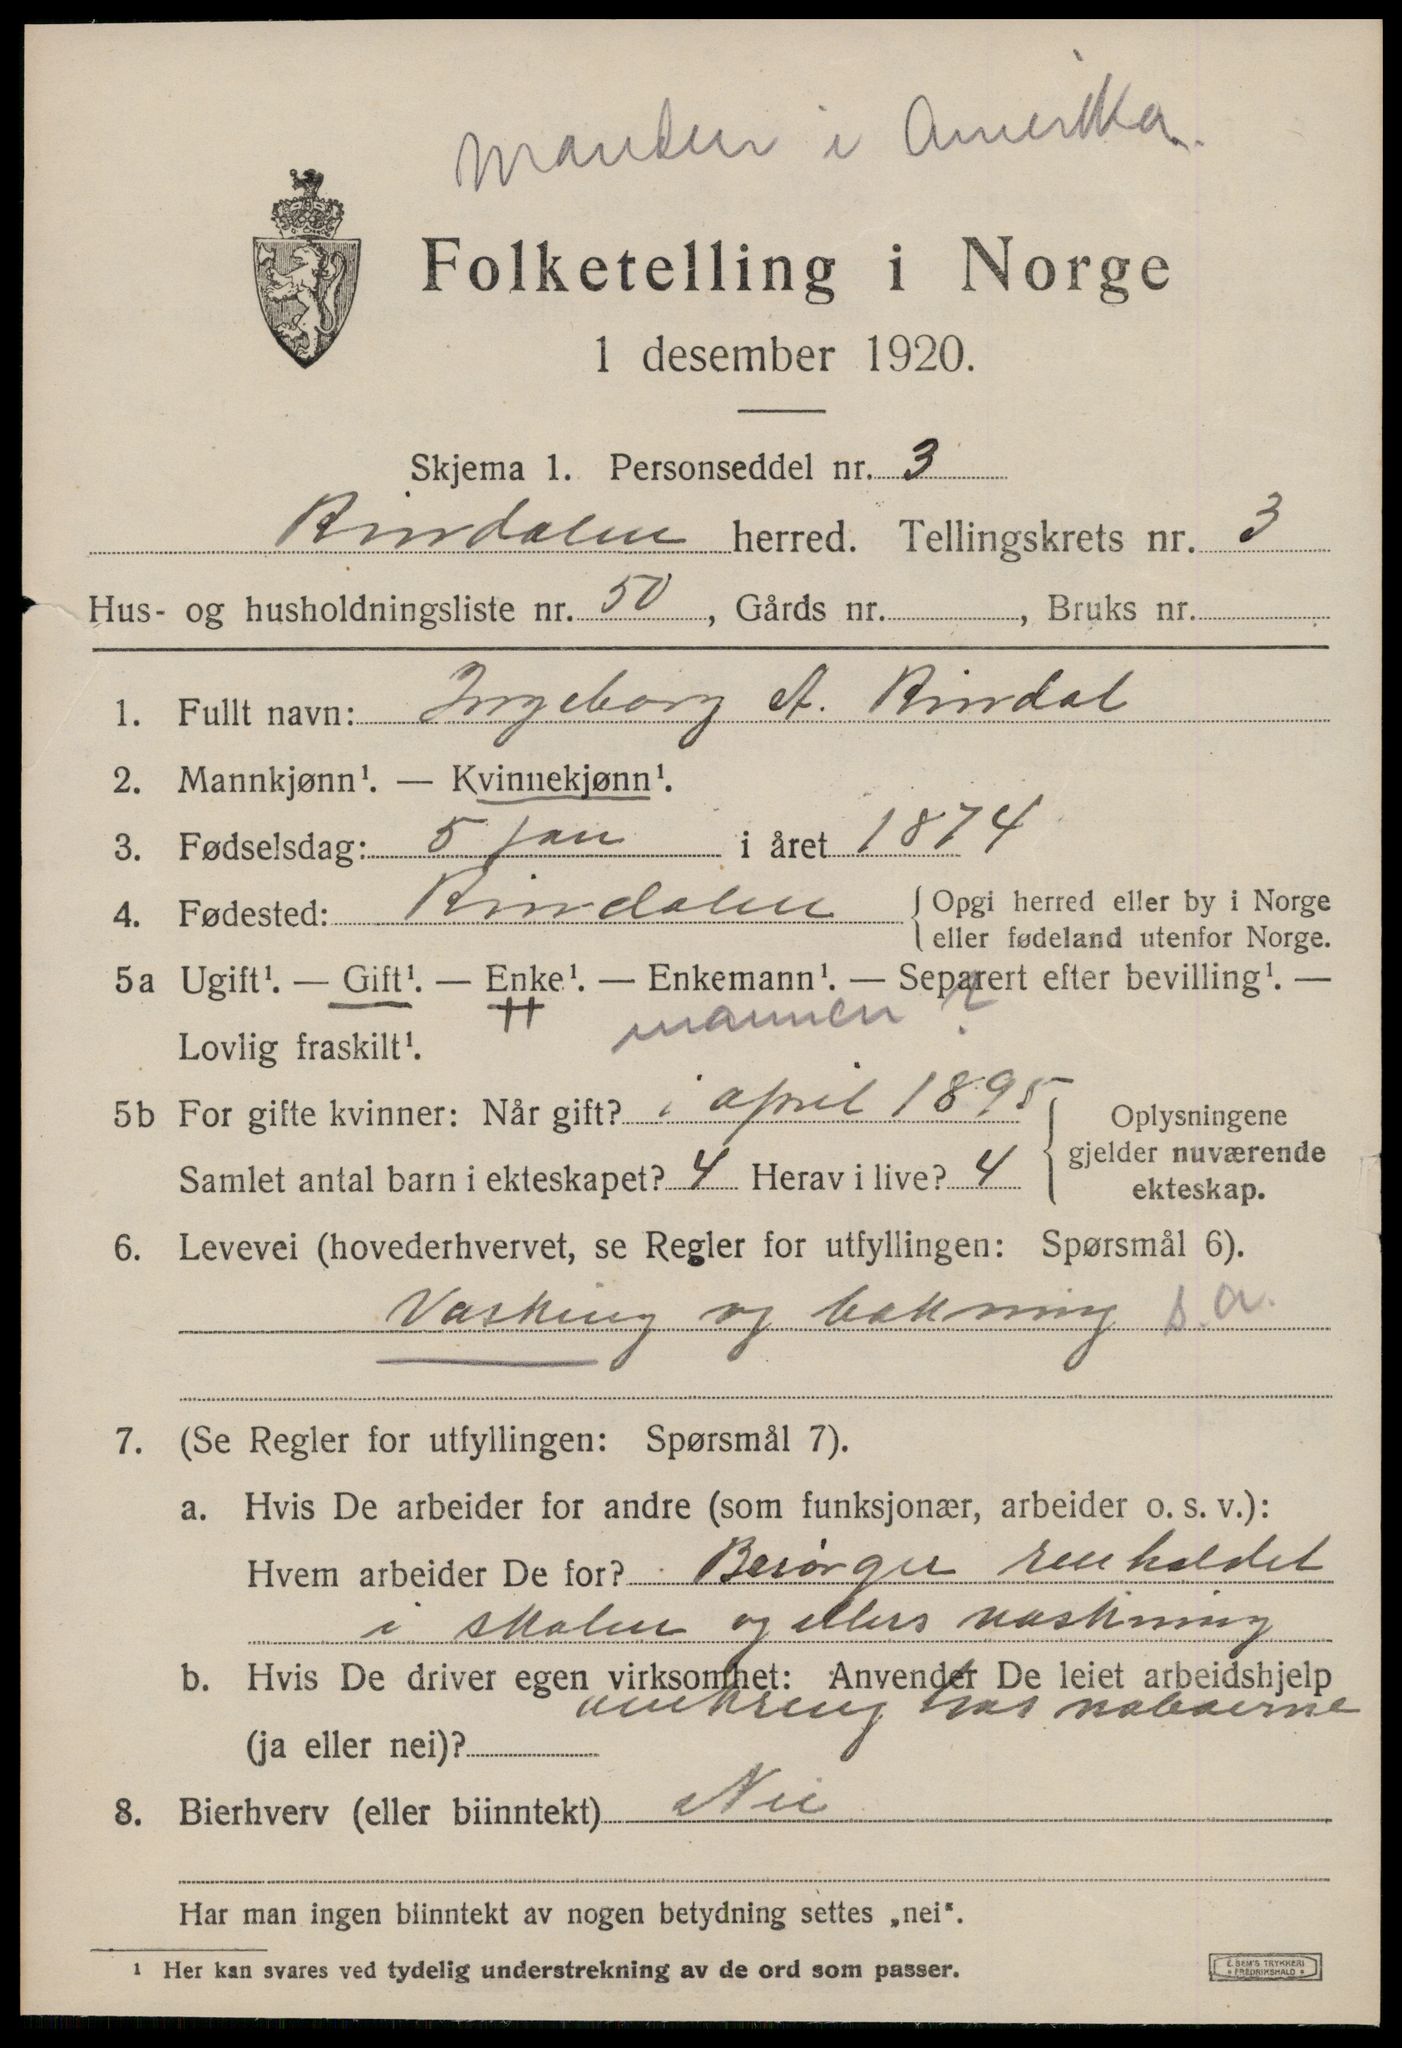 Manden i Amerika.
Folketelling i Norge
1 desember 1920.
Skjema 1. Personseddel nr. 3
Rindalen herred. Tellingskrets nr. 3
Hus- og husholdningsliste nr. 50, Gårds nr. , Bruks nr.
1. Fullt navn: Ingeborg A. Rindal
2. Mannkjønn¹. — Kvinnekjønn¹.
3. Fødselsdag: 5 jan i året 1874
4. Fødested: Rindalen { Opgi herred eller by i Norge
eller fødeland utenfor Norge.
5a Ugift¹. — Gift¹. — Enke¹. — Enkemann¹. — Separert efter bevilling¹. —
mannen ?
Lovlig fraskilt¹.
5b For gifte kvinner: Når gift? i april 1895
Samlet antal barn i ekteskapet? 4 Herav i live? 4
{ Oplysningene
gjelder nuværende
ekteskap.
6. Levevei (hovederhvervet, se Regler for utfyllingen: Spørsmål 6).
Vasking og bakning s.a.
7. (Se Regler for utfyllingen: Spørsmål 7).
a. Hvis De arbeider for andre (som funksjonær, arbeider o. s. v.):
Hvem arbeider De for? Besørger renholdet
i skolen og ellers vaskning
b. Hvis De driver egen virksomhet: Anvender De leiet arbeidshjelp
omkring hos naboerne
(ja eller nei)?
8. Bierhverv (eller biinntekt) Nei
Har man ingen biinntekt av nogen betydning settes „nei".
¹ Her kan svares ved tydelig understrekning av de ord som passer.
E. SEM'S TRYKKERI
* FREDRIKSHALD *